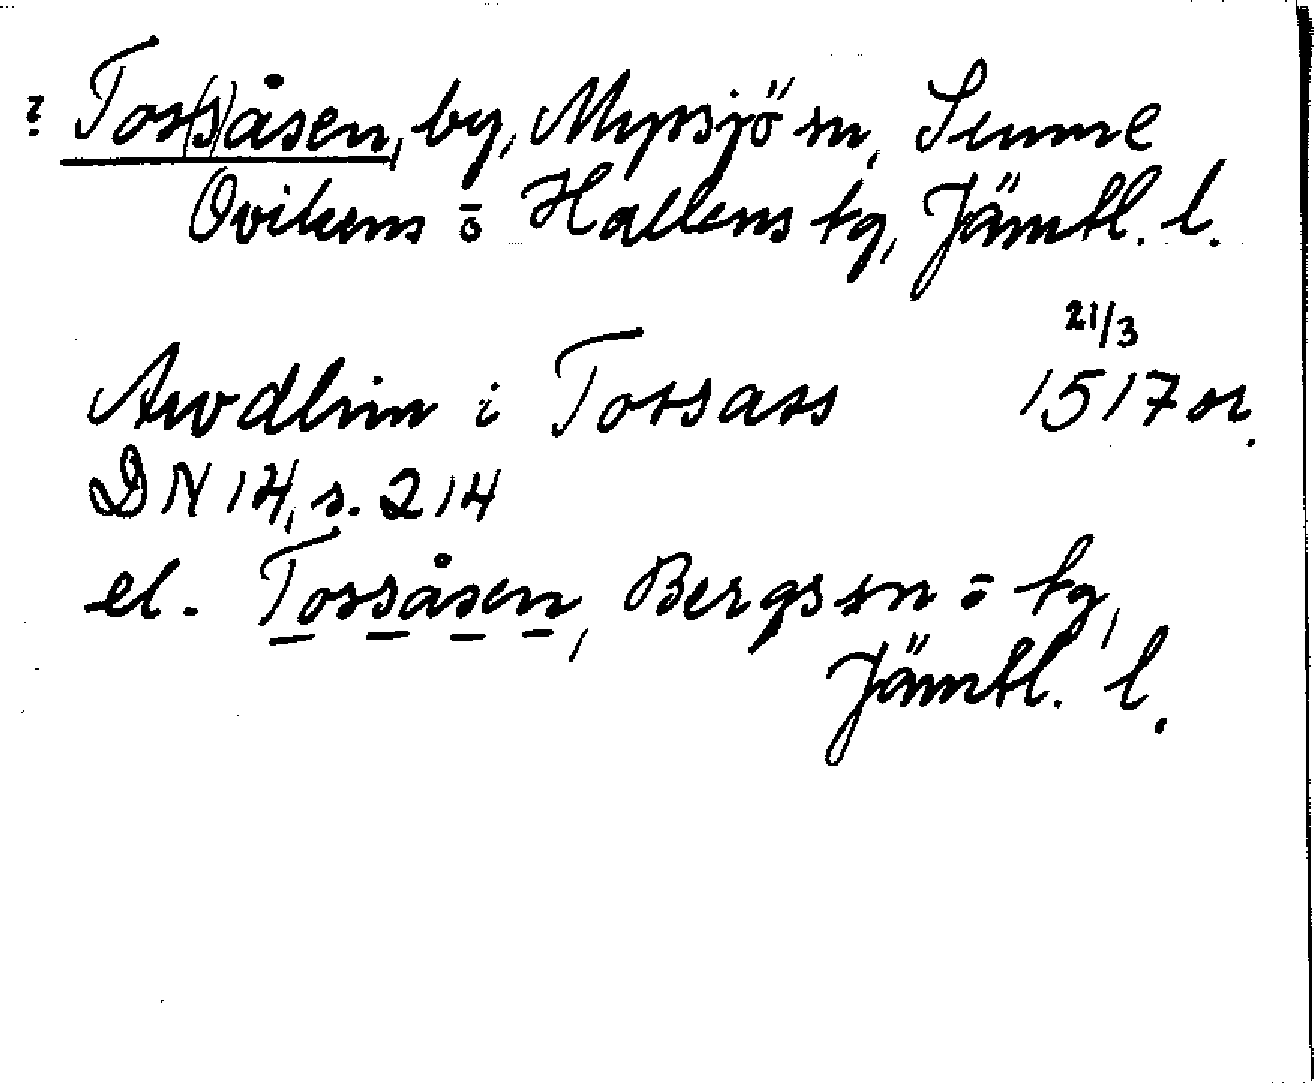 ? Tos(s)åsen, by, Myssjö sn, Sunne
Ovikens o Hallens tg, Jämtl. l.
21/3
Awdhin i Tossass 1517 or.
DN 14, s. 214
el. Tossåsen, Bergs sn o tg,
Jämtl. l.